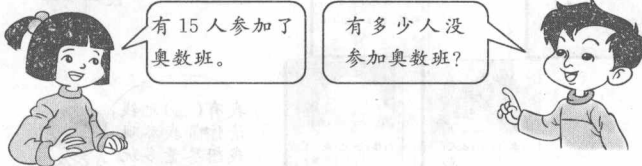 有 15 人参加了
奥数班。
有多少人没
参加奥数班?